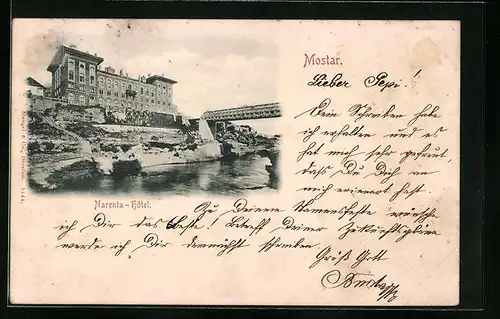 Mostar.
Lieber Pepi!
Dein Schreiben habe
ich erhalten und es
hat mich sehr gefreut,
dass Du Dich an
mich erinnert hast.
Narenta-Hôtel.
Zu Deinem Namensfeste wünsche
ich Dir das Beste! Betreff Deiner Zukunftspläne
werde ich Dir demnächst schreiben
Grüß Gott